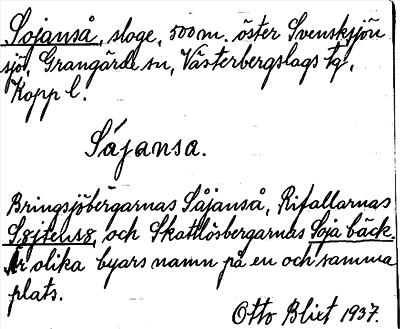 Sojanså, sloge, 500 m. öster Svensksjön
sjö, Grangärde sn, Västerbergslags tg,
Kopp l.
Såjansa.
Bringsjöbergarnas Såjanså, Rifallarnas
och Skattlösbergarnas Soja bäck.
Är olika byars namn på en och samma
plats.
Otto Blixt 1937.